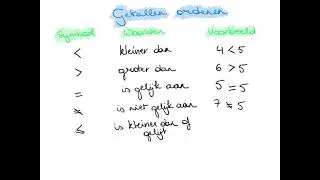 Getallen ordenen
Symbool Woorden Voorbeeld
< kleiner dan 4 < 5
> groter dan 6 > 5
= is gelijk aan 5 = 5
≠ is niet gelijk aan 7 ≠ 5
≤ is kleiner dan of
gelijk